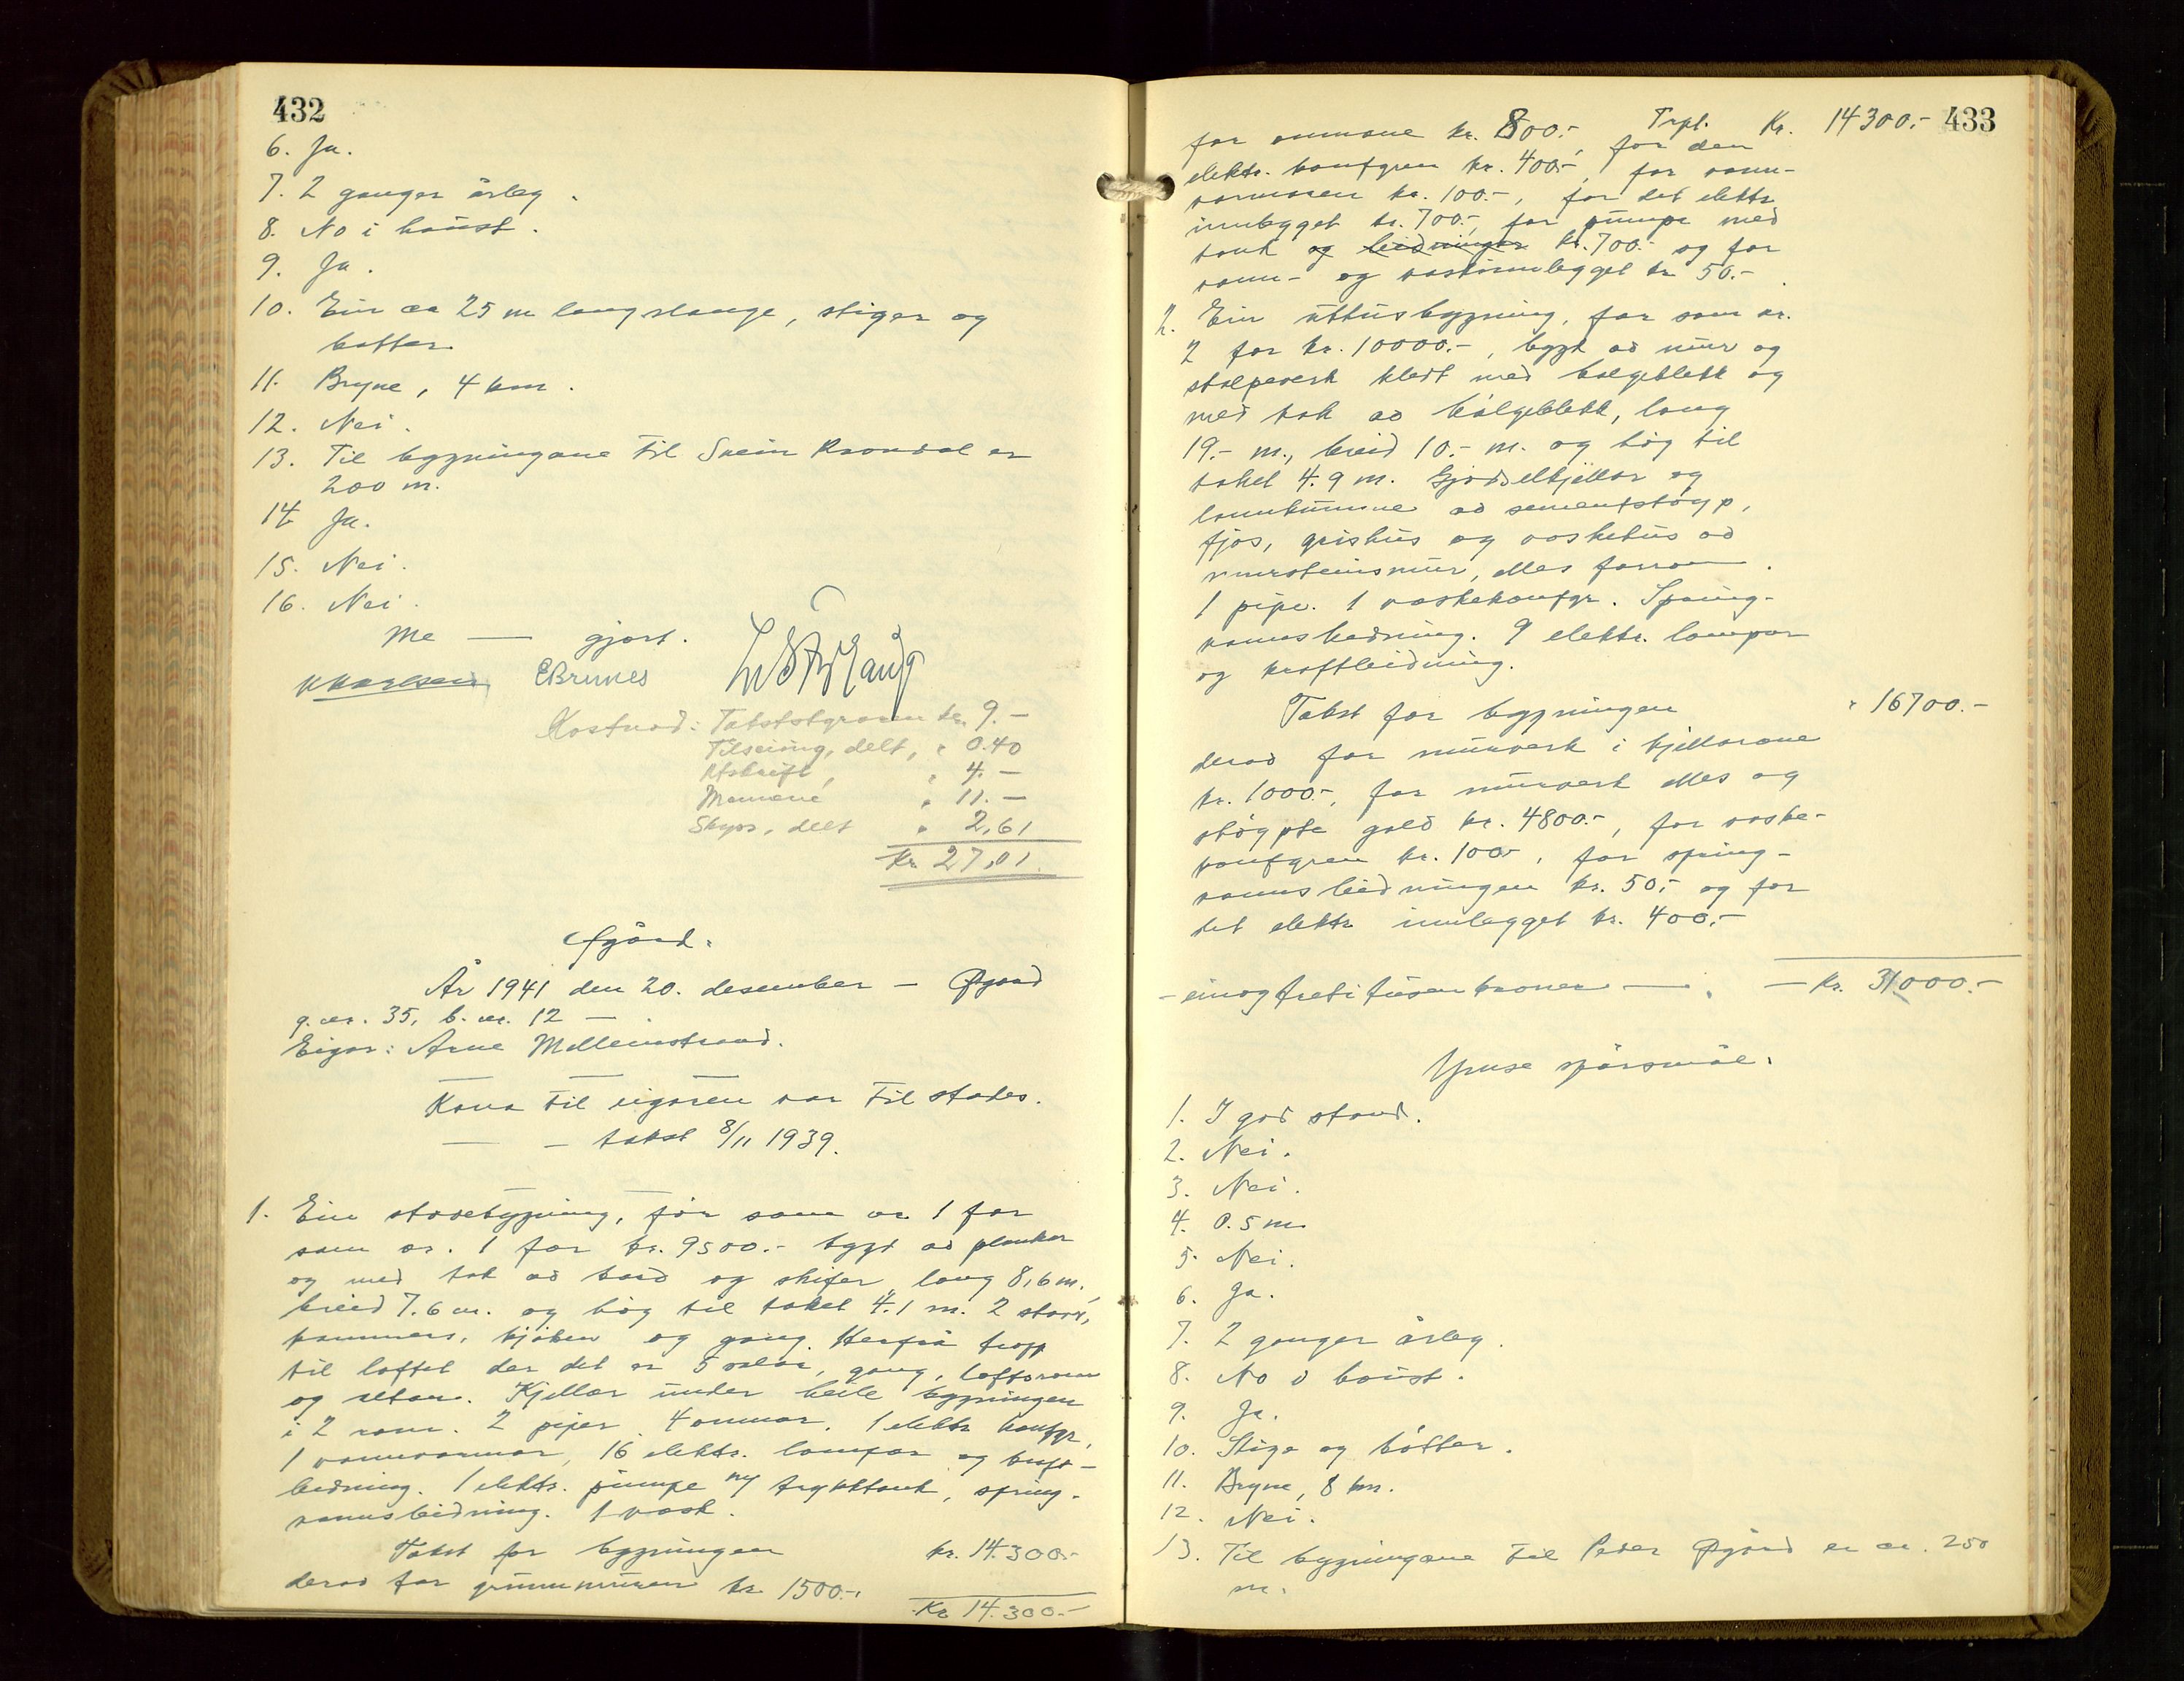 432
6. Ja.
7. 2 ganger årleg.
8. No i haust.
9. Ja.
10. Ein ca 25 m lang slange, stiger og
bøtter.
11. Bryne, 4 km.
12. Nei.
13. Til bygningane til Svein Kvondal er
200 m.
14. Ja.
15. Nei.
16. Nei.
Me — gjort.
EBrunes
Kostnad: Takststyraren kr. 9.-
Tilseiing, delt, " 0.40
Utskrift, " 4.-
Mennene " 11.-
Skyss, delt " 2,61
Kr. 27,01.
År 1941 den 20. desember — Øgård
g.nr. 35, b.nr. 12 —
Eigar: Arne Mellemstrand.
Kona til eigaren var til stades.
— — takst 8/11 1939.
1. Ein stovebygning, før som nr 1 for
som nr. 1 for kr. 9500.- bygt av plankar
og med tak av bord og skifer, lang 8,6 m,
breid 7.6 m. og høg til taket 4.1 m. 2 stover,
kammers, kjøken og gang. Herfrå tropp
til loftet der det er 5 values, gang, loftsrom
og altan. Kjellar under heile bygningen
i 2 rom. 2 piper. 4 omnar. 1 elektr. komfyr,
1 vannvarmar, 16 elektr. lampar og kraft-
leidning. 1 elektr. pumpe m/ trykktank, spring-
vannsleidning. 1 vask.
Takst for bygningen kr. 14.300.-
derav for grunnmuren kr 1500.-
Kr 14.300.-
433
Trpt. Kr. 14300.-
for omnane kr. 800.-, for den
elektr. komfyren kr. 400.-, for vann-
varmaren kr. 100.-, for det elektr.
innlegget kr. 700.-, for pumpe med
tank og leidningar kr. 700.- og for
vann- og vaskinnlegget kr 50.-.
2. Ein uthusbygning, før som nr.
2 for kr. 10000.-, bygt av mur og
stolpeverk kledt med bølgeblekk og
med tak av bølgeblekk, lang
19.- m., breid 10.- m. og høg til
taket 4.9 m. Gjødselkjellar og
landkumme av sementstøyp,
fjøs, grishus og vaskehus av
mursteinsmur, elles forrom.
1 pipe. 1 vaskekomfyr. Spring-
vannsleidning. 9 elektr. lampar
og kraftleidning.
Takst for bygningen " 16700.-
derav for murverk i kjellarane
kr. 1000.-, for murverk elles og
støypte golv kr. 4800.-, for vaske-
komfyren kr. 100.-, for spring-
vannsleidningen kr. 50.- og for
det elektr. innlegget kr. 400.-
- einogtretitusen kroner — . — Kr. 31.000.-
Ymse spørsmål.
1. I god stand.
2. Nei.
3. Nei.
4. 0.5 m
5. Nei.
6. Ja.
7. 2 ganger årleg.
8. No i haust.
9. Ja.
10. Stige og bøtter.
11. Bryne, 8 km.
12. Nei.
13. Til bygningane til Peder Øgård er ca. 250
m.